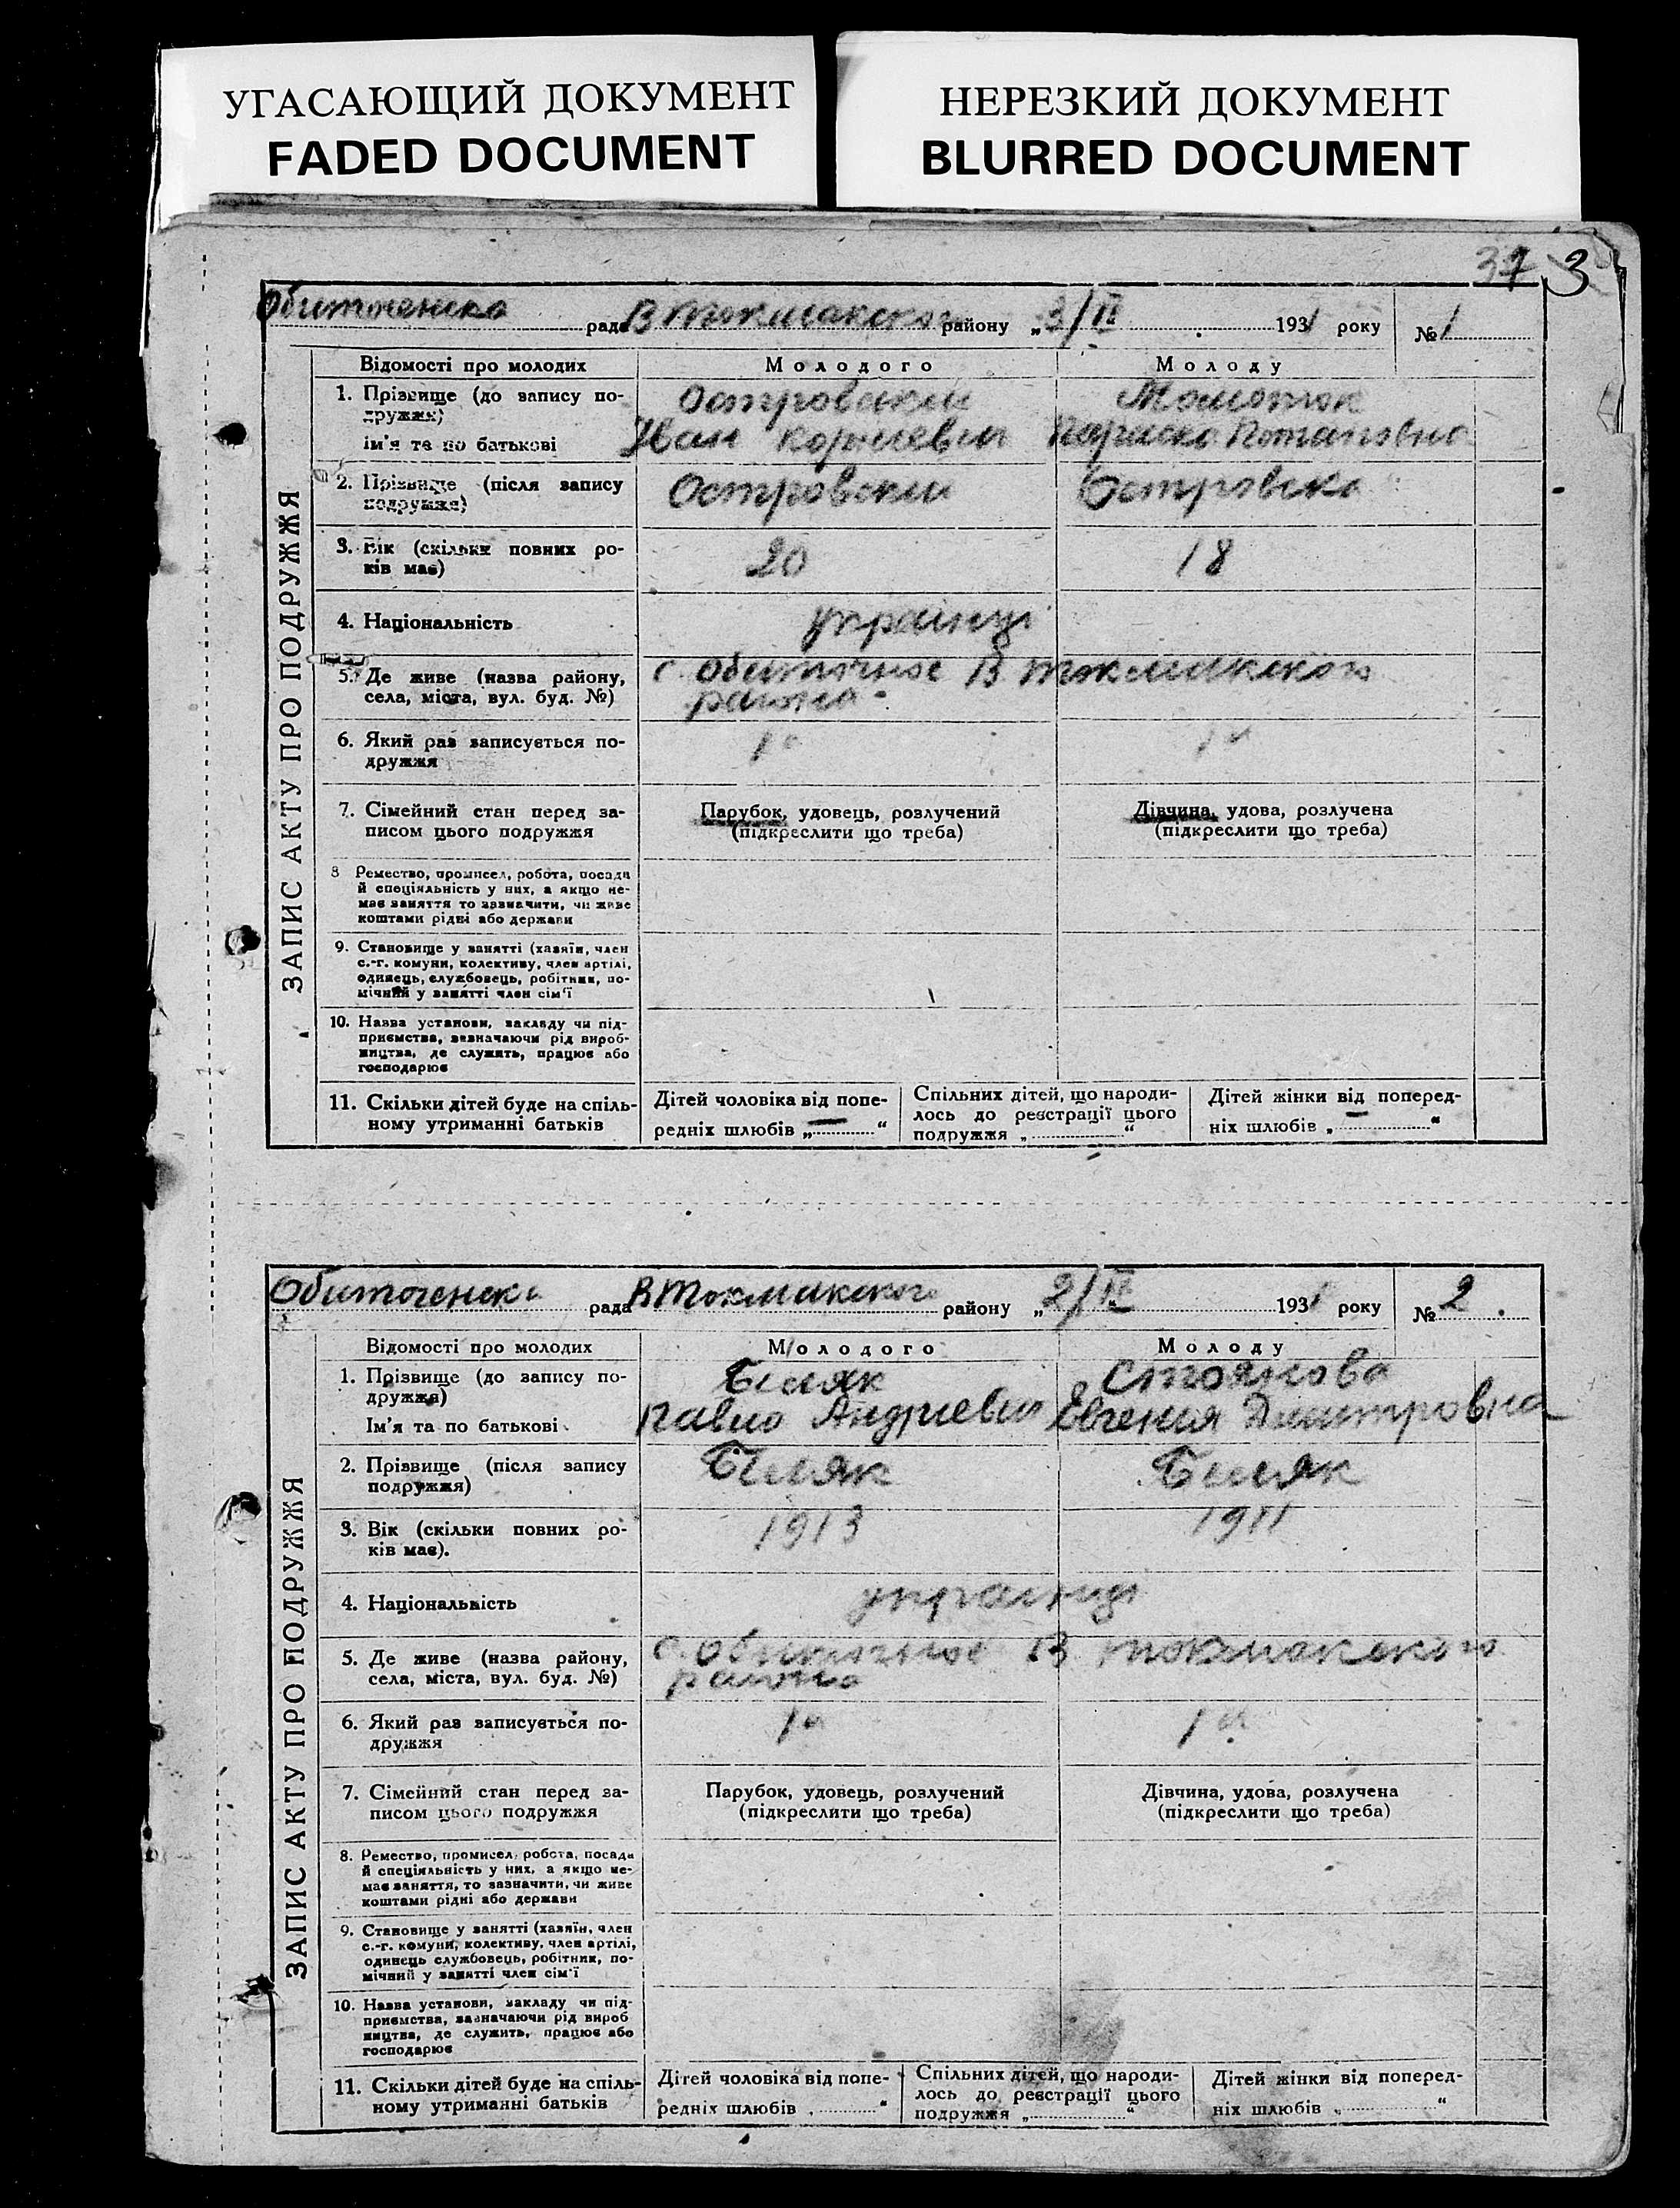 УГАСАЮЩИЙ ДОКУМЕНТ
FADED DOCUMENT
НЕРЕЗКИЙ ДОКУМЕНТ
BLURRED DOCUMENT
3
Обиточенска рада В Токмакского району „3/II 1931 року №1
ЗАПИС АКТУ ПРО ПОДРУЖЖЯ
Відомості про молодих Молодого Молоду
1. Прізвище (до запису по-
дружжя)
Островский
ім'я та по батькові
Иван Корнеевич Параска Потаповна
2. Прізвище (після запису
подружжя)
Островский Островска
3. Вік (скільки повних ро-
ків має)
20 18
4. Національність
українці
5. Де живе (назва району,
села, міста, вул. буд. №)
с. Обиточное В Токмакского
района
6. Який раз записується по-
дружжя
1й 1й
7. Сімейний стан перед за-
писом цього подружжя
Парубок, удовець, розлучений
(підкреслити що треба)
Дівчина, удова, розлучена
(підкреслити що треба)
8 Ремество, промисел, робота, посада
й спеціяльність у них, а якщо не-
має заняття то зазначити, чи живе
коштами рідні або держави
9. Становище у занятті (хазяїн, член
с.-г. комуни, колективу, член артілі,
одинець, службовець, робітник, по-
мічний у занятті член сім'ї
10. Назва установи, закладу чи під-
приємства, зазначаючи рід вироб-
ництва, де служить, працює або
господарює
11. Скільки дітей буде на спіль-
ному утриманні батьків
Дітей чоловіка від попе-
редніх шлюбів „ — “
Спільних дітей, що народи-
лось до реєстрації цього
подружжя „ “
Дітей жінки від поперед-
ніх шлюбів „ — “
Обиточенска рада В Токмакского району „2/II 1931 року № 2.
ЗАПИС АКТУ ПРО ПОДРУЖЖЯ
Відомості про молодих Молодого Молоду
1. Прізвище (до запису по-
дружжя)
Биляк Стоянова
Ім'я та по батькові
Павло Андриевич Евгения Дмитровна
2. Прізвище (після запису
подружжя)
Биляк Биляк
3. Вік (скільки повних ро-
ків має).
1913 1911
4. Національність
українці
5. Де живе (назва району,
села, міста, вул. буд. №)
с. Обиточное В Токмакского
района
6. Який раз записується по-
дружжя
1й 1й
7. Сімейний стан перед за-
писом цього подружжя
Парубок, удовець, розлучений
(підкреслити що треба)
Дівчина, удова, розлучена
(підкреслити що треба)
8. Ремество, промисел, робота, посада
й спеціяльність у них, а якщо не-
має заняття, то зазначити, чи живе
коштами рідні або держави
9. Становище у занятті (хазяїн, член
с.-г. комуни, колективу, член артілі,
одинець службовець, робітник, по-
мічний у занятті член сім'ї
10. Назва установи, закладу чи під-
приємства, зазначаючи рід вироб
ництва, де служить, працює або
господарює
11. Скільки дітей буде на спіль-
ному утриманні батьків
Дітей чоловіка від попе-
редніх шлюбів „ “
Спільних дітей, що народи-
лось до реєстрації цього
подружжя „ “
Дітей жінки від поперед-
ніх шлюбів „ “